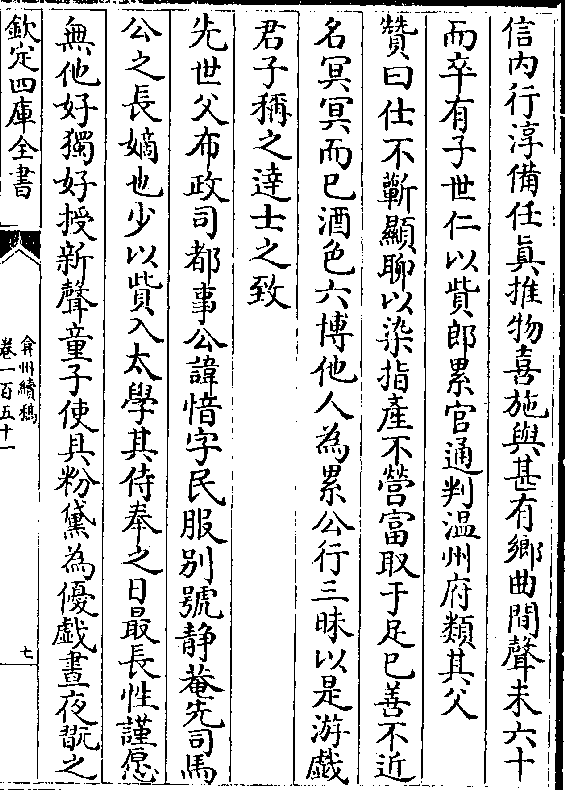 信内行淳備任眞推物喜施與甚有鄉曲間聲未六十
而卒有子世仁以貲郎累官通判温州府類其父
贊曰仕不蘄顯聊以染指產不營富取于足已善不近
名冥冥而已酒色六博他人為累公行三昧以是游戲
君子稱之達士之致
先世父布政司都事公諱愔字民服别號静菴先司馬
公之長嫡也少以貲入太學其侍奉之日最長性謹愿
無他好獨好授新聲童子使具粉黛為優戲晝夜翫之
欽定四庫全書
弇州續稿
卷一百五十一
七